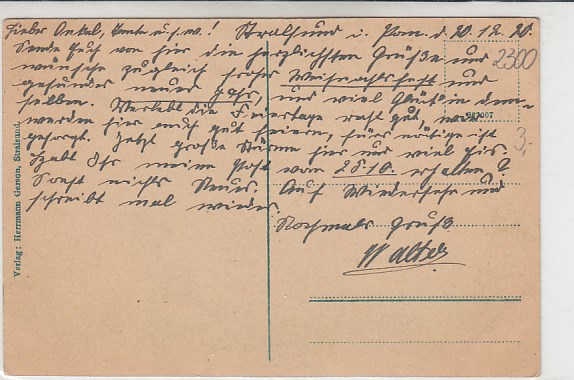 Lieber Onkel, Tante u.s.w.! Stralsund i. Pom. d. 20.12.20.
Sende Euch von hier die herzlichsten Grüße und
wünsche zugleich frohes Weihnachtsfest und
gesundes neues Jahr, und viel Glück in dem-
selben. Verlebt die Feiertage recht gut, wir
werden hier auch gut feiern, fürs nötige ist
gesorgt. Jetzt große Stürme hier und viel Eis.
Habt Ihr meine Post vom 28.10. erhalten?
Sonst nichts Neues. Auf Wiedersehn und
schreibt mal wieder.
Nochmals Gruß
Walter
2300
3,-
Verlag: Herrmann Gerson, Stralsund.